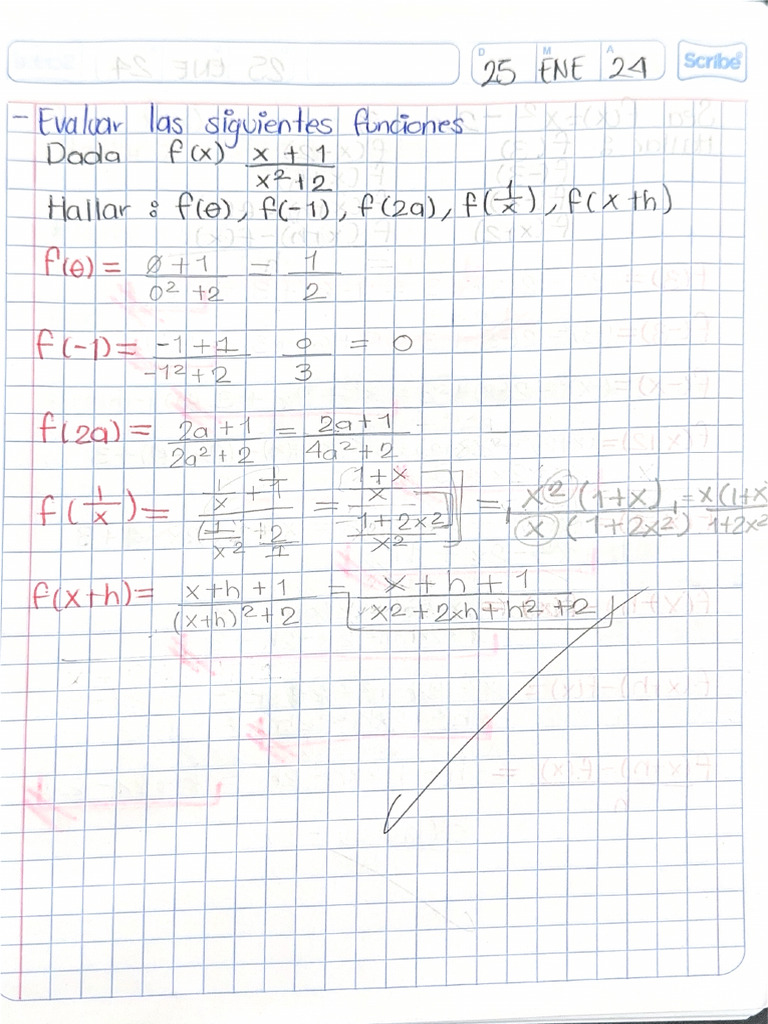 D M A
25 ENE 24 Scribe
- Evaluar las siguientes funciones
Dada f(x) x + 1 / x² + 2
Hallar : f(0), f(-1), f(2a), f(1/x), f(x+h)
f(0) = 0 + 1 / 0² + 2 = 1 / 2
f(-1) = -1 + 1 / -1² + 2 0 / 3 = 0
f(2a) = 2a + 1 / 2a² + 2 = 2a + 1 / 4a² + 2
f(1/x) = 1/x + 1/1 / 1/x² + 2/1 = 1+x / x / 1+2x² / x² = x²(1+x) / x(1+2x²) = x(1+x / 1+2x²
f(x+h) = x+h+1 / (x+h)²+2 = x+h+1 / x²+2xh+h²+2